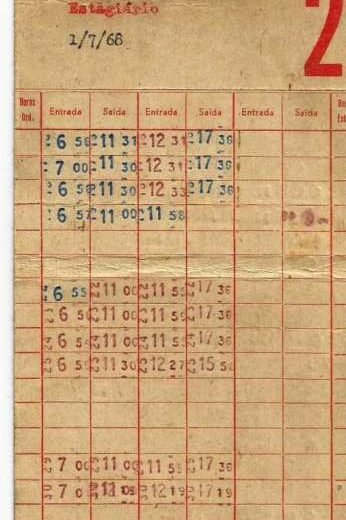 Estagiário
1/7/68
2
Horas Ord. Entrada Saída Entrada Saída Entrada Saída
6 56 11 31 12 31 17 36
7 00 11 30 12 31 17 36
6 56 11 30 12 33 17 36
6 57 11 00 11 58
6 55 11 00 11 17 36
6 11 00 11 17 36
6 11 00 11 17 36
6 11 30 12 27 15
7 00 11 00 11 17 36
7 0 11 12 19 17 19